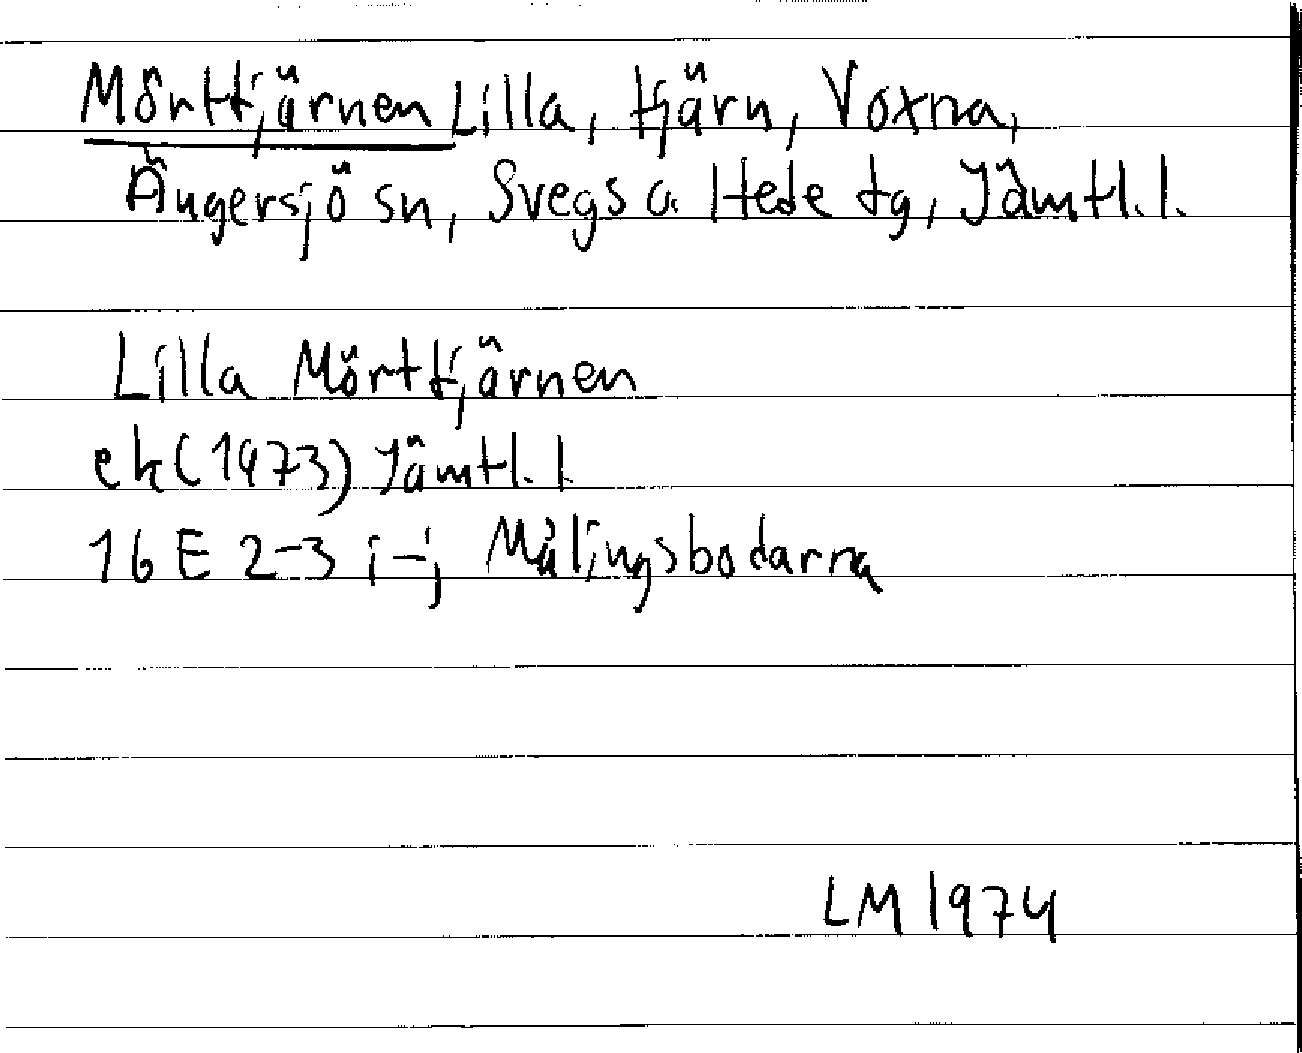 Mörttjärnen Lilla, tjärn, Voxna,
Ängersjö sn, Svegs o. Hede tg, Jämtl. l.
Lilla Mörttjärnen
ek (1973) Jämtl. l.
16 E 2-3 i-j Målingsbodarna
LM 1974